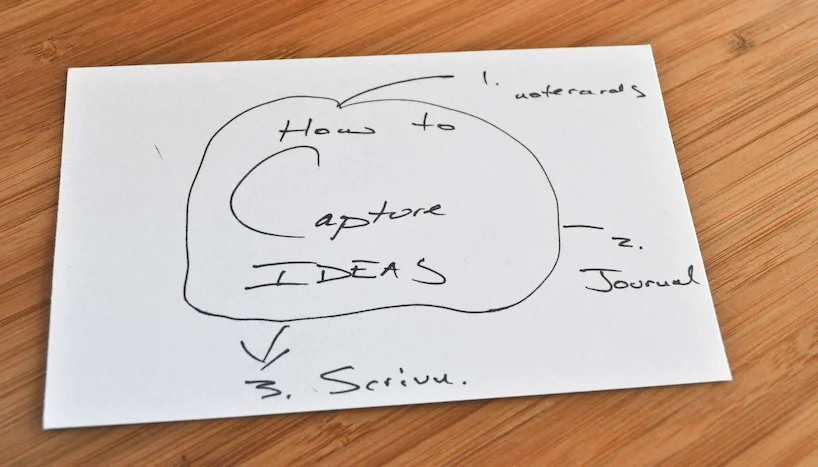 1. notecards
How to
Capture
IDEAS
2.
Journal
3. Scrivn.